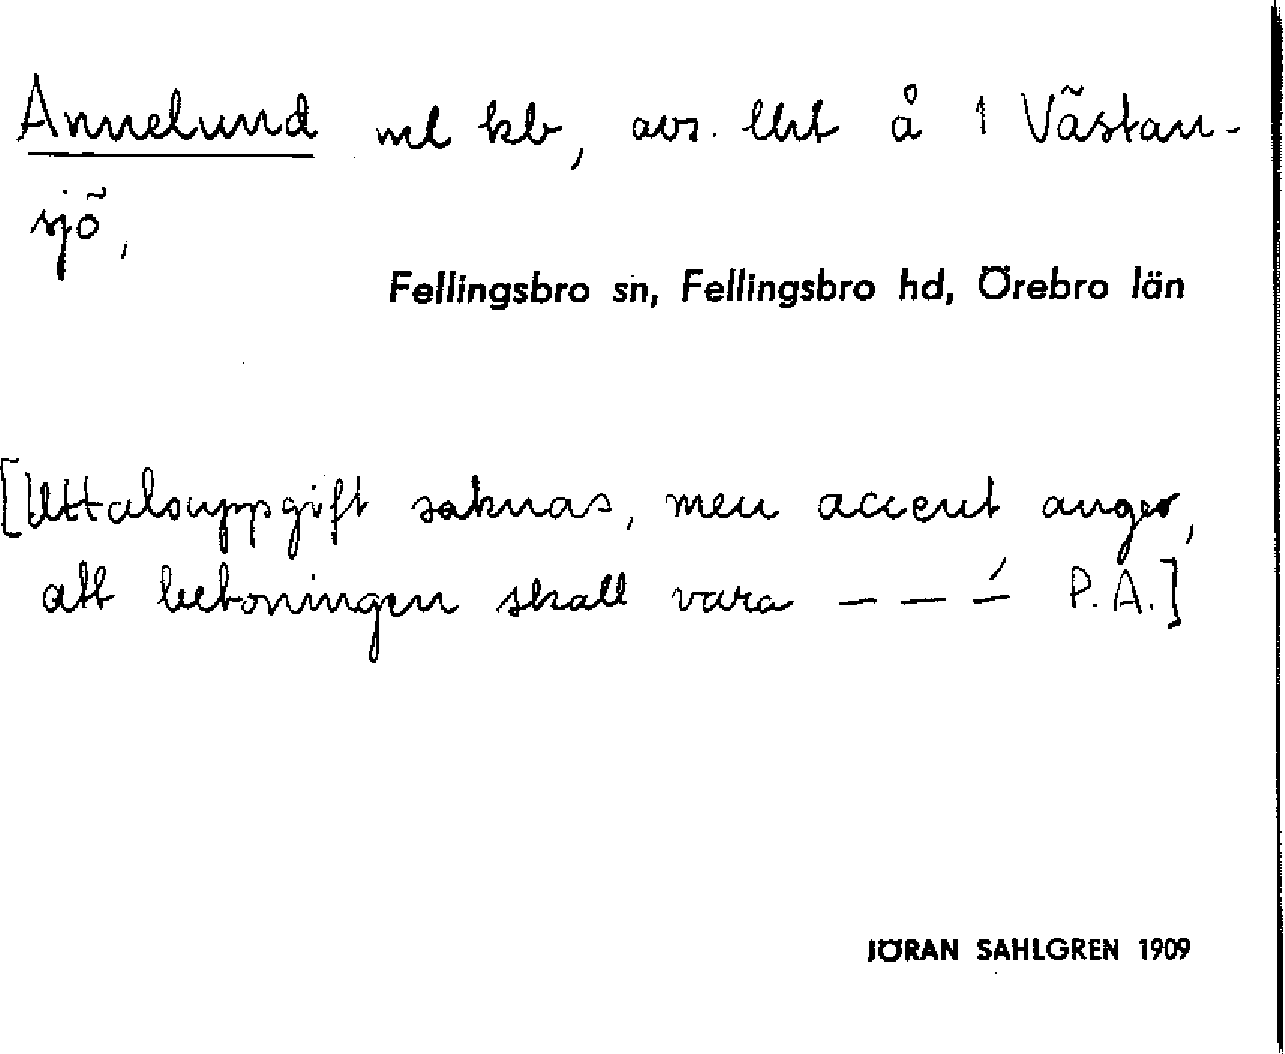 Annelund ml kb, avs. lht å 1 Västan-
sjö,
Fellingsbro sn, Fellingsbro hd, Örebro län
[Uttalsuppgift saknas, men accent anger,
att betoningen skall vara — — —́ P.A.]
JÖRAN SAHLGREN 1909